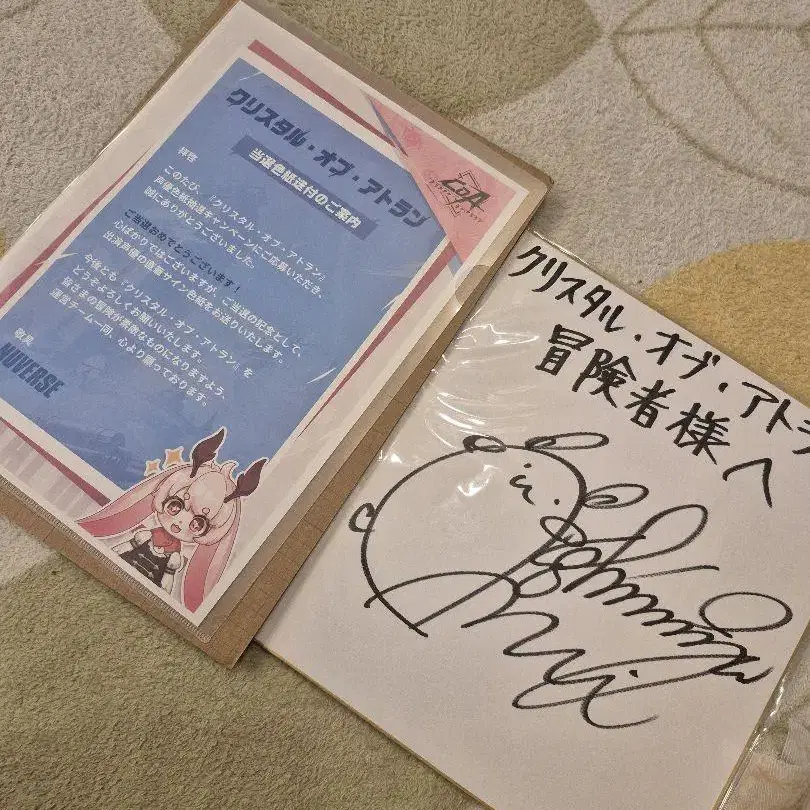 クリスタル・オブ・アトラン
当選色紙送付のご案内
COA
拝啓
このたび、『クリスタル・オブ・アトラン』
声優色紙抽選キャンペーンにご応募いただき、
誠にありがとうございました。
ご当選おめでとうございます！
心ばかりではございますが、ご当選の記念として、
出演声優の直筆サイン色紙をお送りいたします。
今後とも『クリスタル・オブ・アトラン』を
どうぞよろしくお願いいたします。
皆さまの冒険が素敵なものになりますよう、
運営チーム一同、心より願っております。
敬具
NUVERSE
クリスタル・オブ・アトラ
冒険者様へ